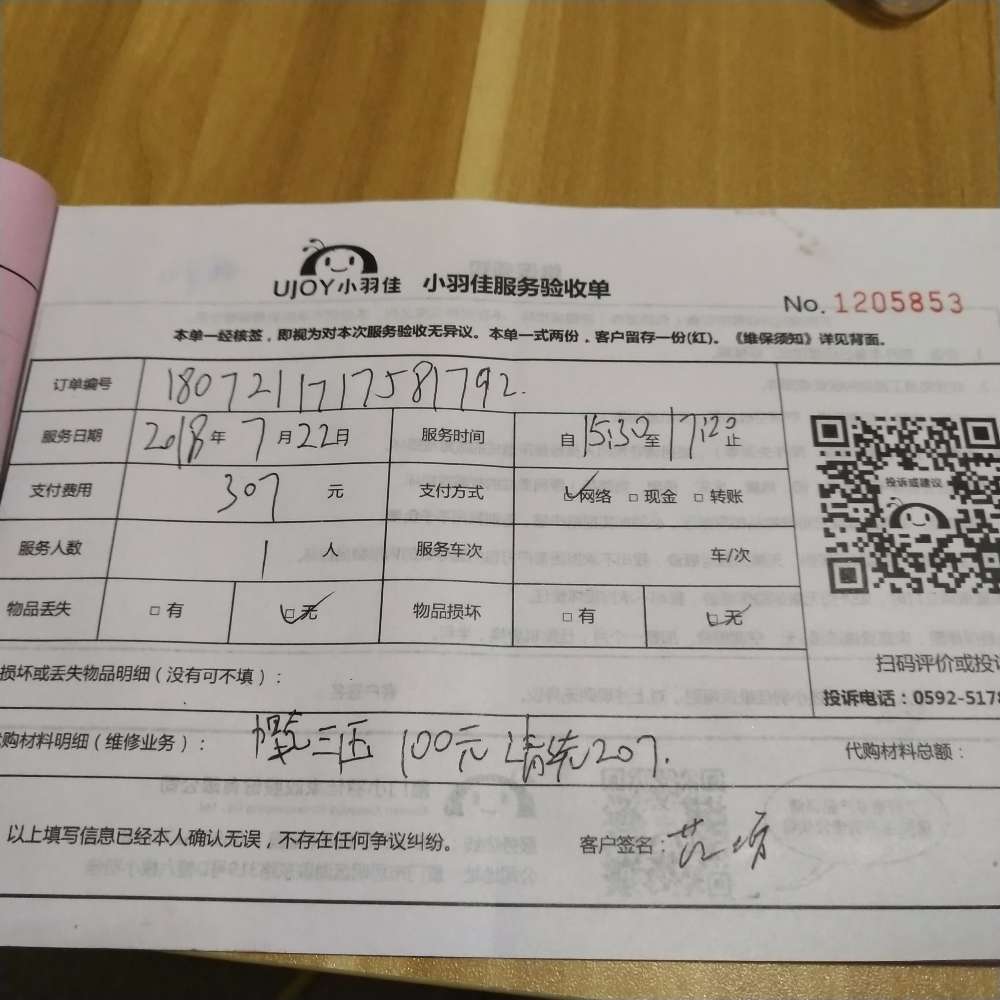 UJOY小羽佳 小羽佳服务验收单
No. 1205853
本单一经核签，即视为对本次服务验收无异议。本单一式两份，客户留存一份(红)。《维保须知》详见背面。
订单编号 1807211717581792.
服务日期 2018年7月22日 服务时间 自15:30至17:20止
支付费用 307 元 支付方式 ☑网络 □现金 □转账
投诉或建议
服务人数 1 人 服务车次 车/次
物品丢失 □有 ☑无 物品损坏 □有 ☑无
扫码评价或投
损坏或丢失物品明细（没有可不填）：
投诉电话：0592-5178
购材料明细（维修业务）： 100元 207. 代购材料总额：
以上填写信息已经本人确认无误，不存在任何争议纠纷。 客户签名：